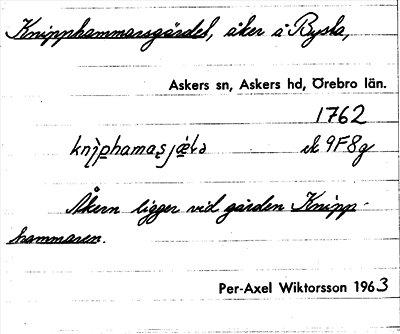 Knipphammarsgärdet, åker å Bysta,
Askers sn, Askers hd, Örebro län.
1762
ek 9F8g
Åkern ligger vid gården Knipp-
hammaren.
Per-Axel Wiktorsson 1963